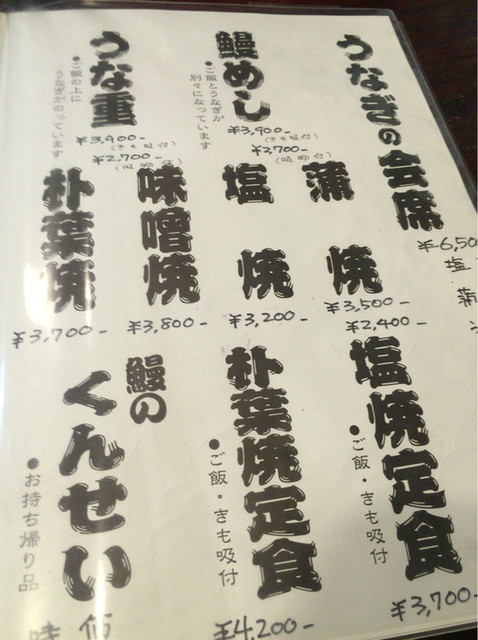 うなぎの会席
¥6,50
塩
蒲
鰻めし
●ご飯とうなぎが
別々になっています
¥3,900-
(きも吸付)
¥2,700
うな重
●ご飯の上に
うなぎがのっています
¥3,900-
(きも吸付)
¥2,700-
蒲焼
¥3,500-
¥2,400-
塩焼
¥3,200-
味噌焼
¥3,800-
朴葉焼
¥3,700-
塩焼定食
●ご飯・きも吸付
¥3,700-
朴葉焼定食
●ご飯・きも吸付
¥4,200-
鰻の
くんせい
●お持ち帰り品